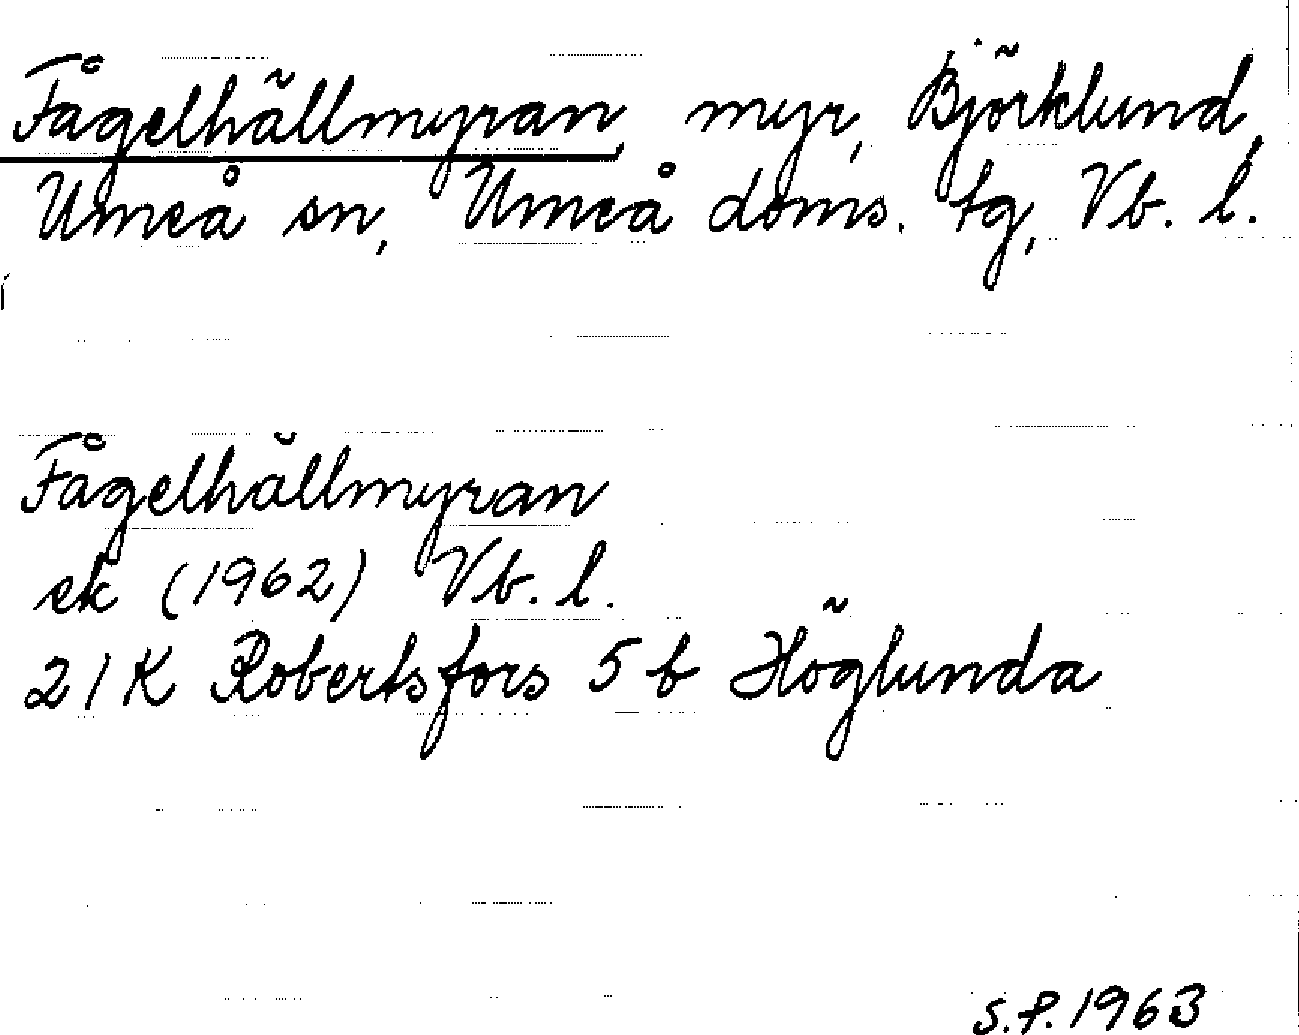 Fågelhällmyran, myr, Björklund,
Umeå sn, Umeå doms. tg, Vb. l.
Fågelhällmyran
ek (1962) Vb. l.
21 K Robertsfors 5 b Höglunda
S.P. 1963